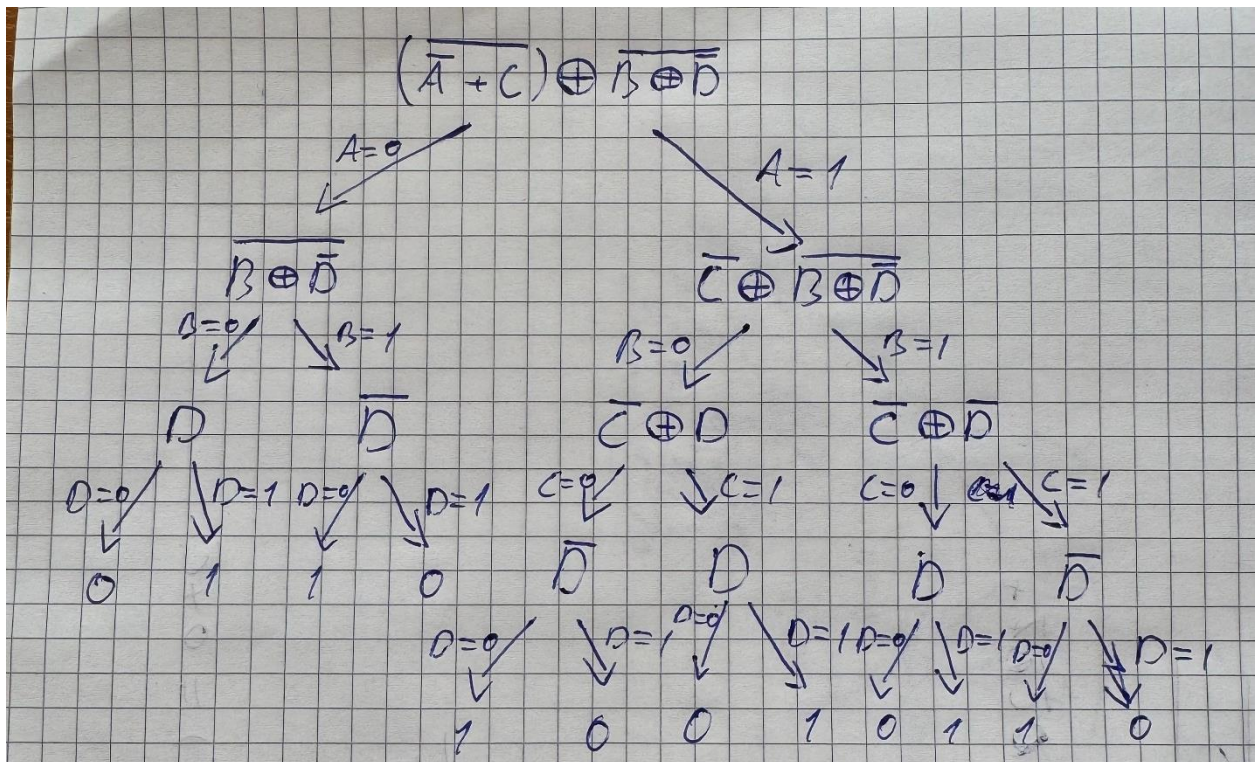 (A̅ + C)̅ ⊕ B ⊕ D̅̅
A=0 A=1
B ⊕ D̅̅ C̅ ⊕ B ⊕ D̅̅
B=0 B=1 B=0 B=1
D D̅ C̅ ⊕ D C̅ ⊕ D̅
D=0 D=1 D=0 D=1 C=0 C=1 C=0 C=1
0 1 1 0 D̅ D D D̅
D=0 D=1 D=0 D=1 D=0 D=1 D=0 D=1
1 0 0 1 0 1 1 0